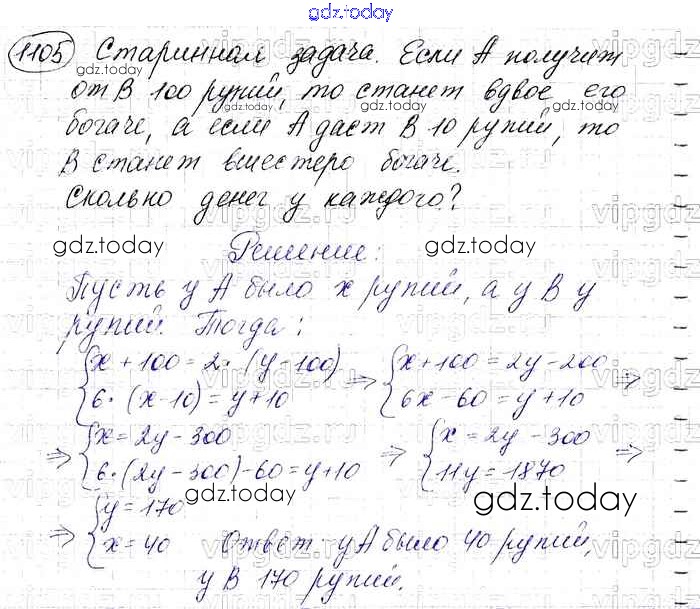 gdz.today
1105 Старинная задача. Если А получит
gdz.today
от В 100 рупий, то станет вдвое его
gdz.today
богаче, а если А даст В 10 рупий, то
В станет вшестеро богаче.
Сколько денег у каждого?
vipgdz
gdz.today Решение: gdz.today
Пусть у А было x рупий, а у В y
рупий. Тогда:
{x + 100 = 2·(y - 100) => {x + 100 = 2y - 200 =>
{6·(x - 10) = y + 10 {6x - 60 = y + 10
=> {x = 2y - 300 => {x = 2y - 300 =>
{6·(2y - 300) - 60 = y + 10 {11y = 1870
gdz.today gdz.today
=> {y = 170
{x = 40 Ответ: у А было 40 рупий,
у В 170 рупий.
gdz.today